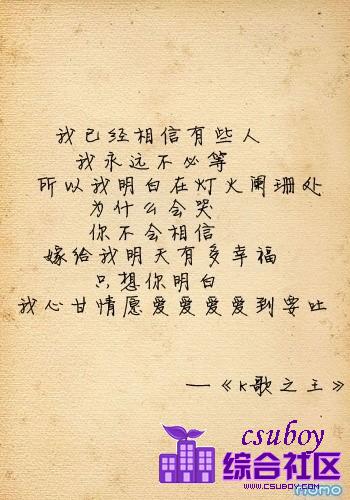 我已经相信有些人
我永远不必等
所以我明白在灯火阑珊处
为什么会哭
你不会相信
嫁给我明天有多幸福
只想你明白
我心甘情愿爱爱爱爱到要吐
—《K歌之王》
csuboy
综合社区
WWW.CSUBOY.COM
MOMO